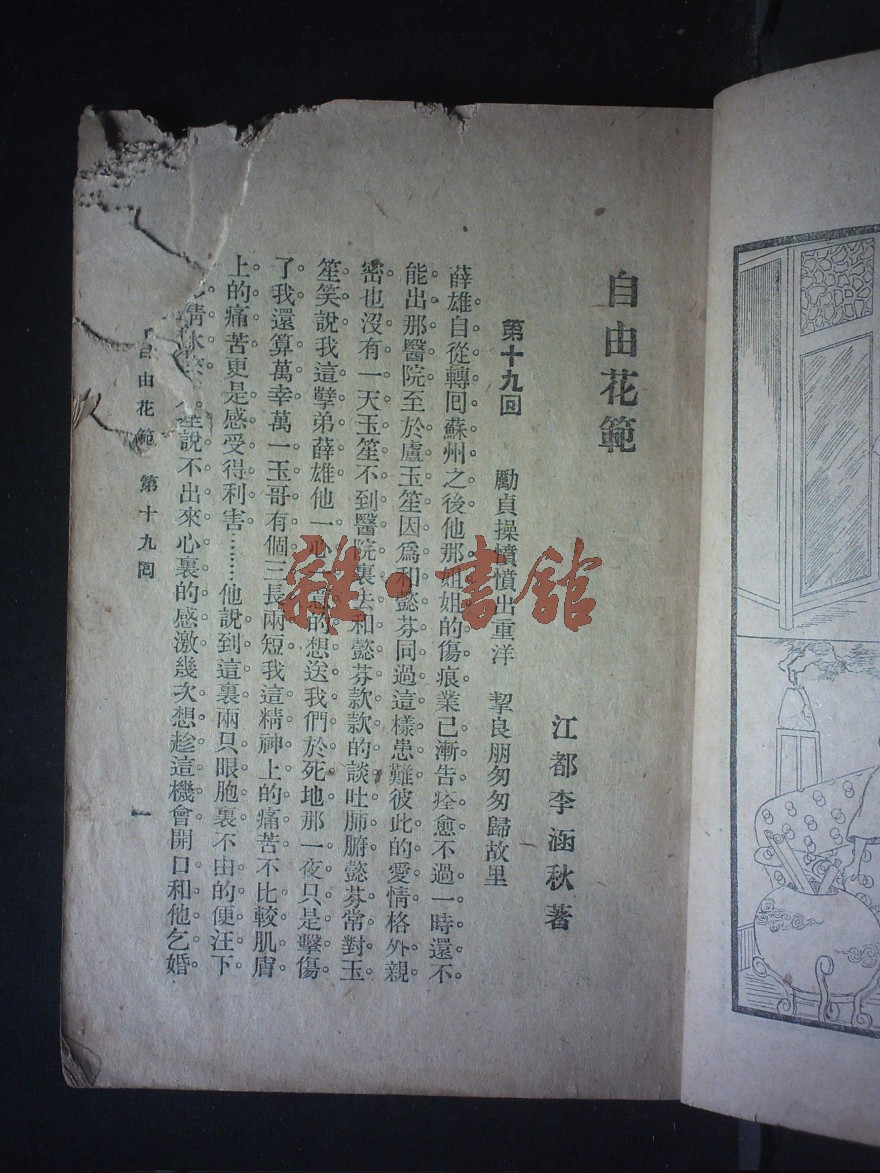 自由花範
江都李涵秋著
第十九回　勵貞操憤憤出重洋　挈良朋匆匆歸故里
薛雄自從轉回蘇州之後他那姐姐的傷痕業已漸告痊愈不過一時還不
能出那醫院至於盧玉笙因爲和懿芬同過這樣患難彼此的愛情格外親
密也沒有一天玉笙不到醫院裏去和懿芬款款的談吐肺腑懿芬常對玉
笙笑說我這孽弟薛雄他一心一意的想送我們於死地那一夜只是擊傷
了我還算萬幸萬一玉哥有個三長兩短我這精神上的痛苦不比較肌膚
上的痛苦更是感受得利害………他說到這裏兩只眼胞裏不由的便汪下
說不出來心裏的感激幾次想趁這機會開口和他乞婚
自由花範　第十九回
一
雜·書館